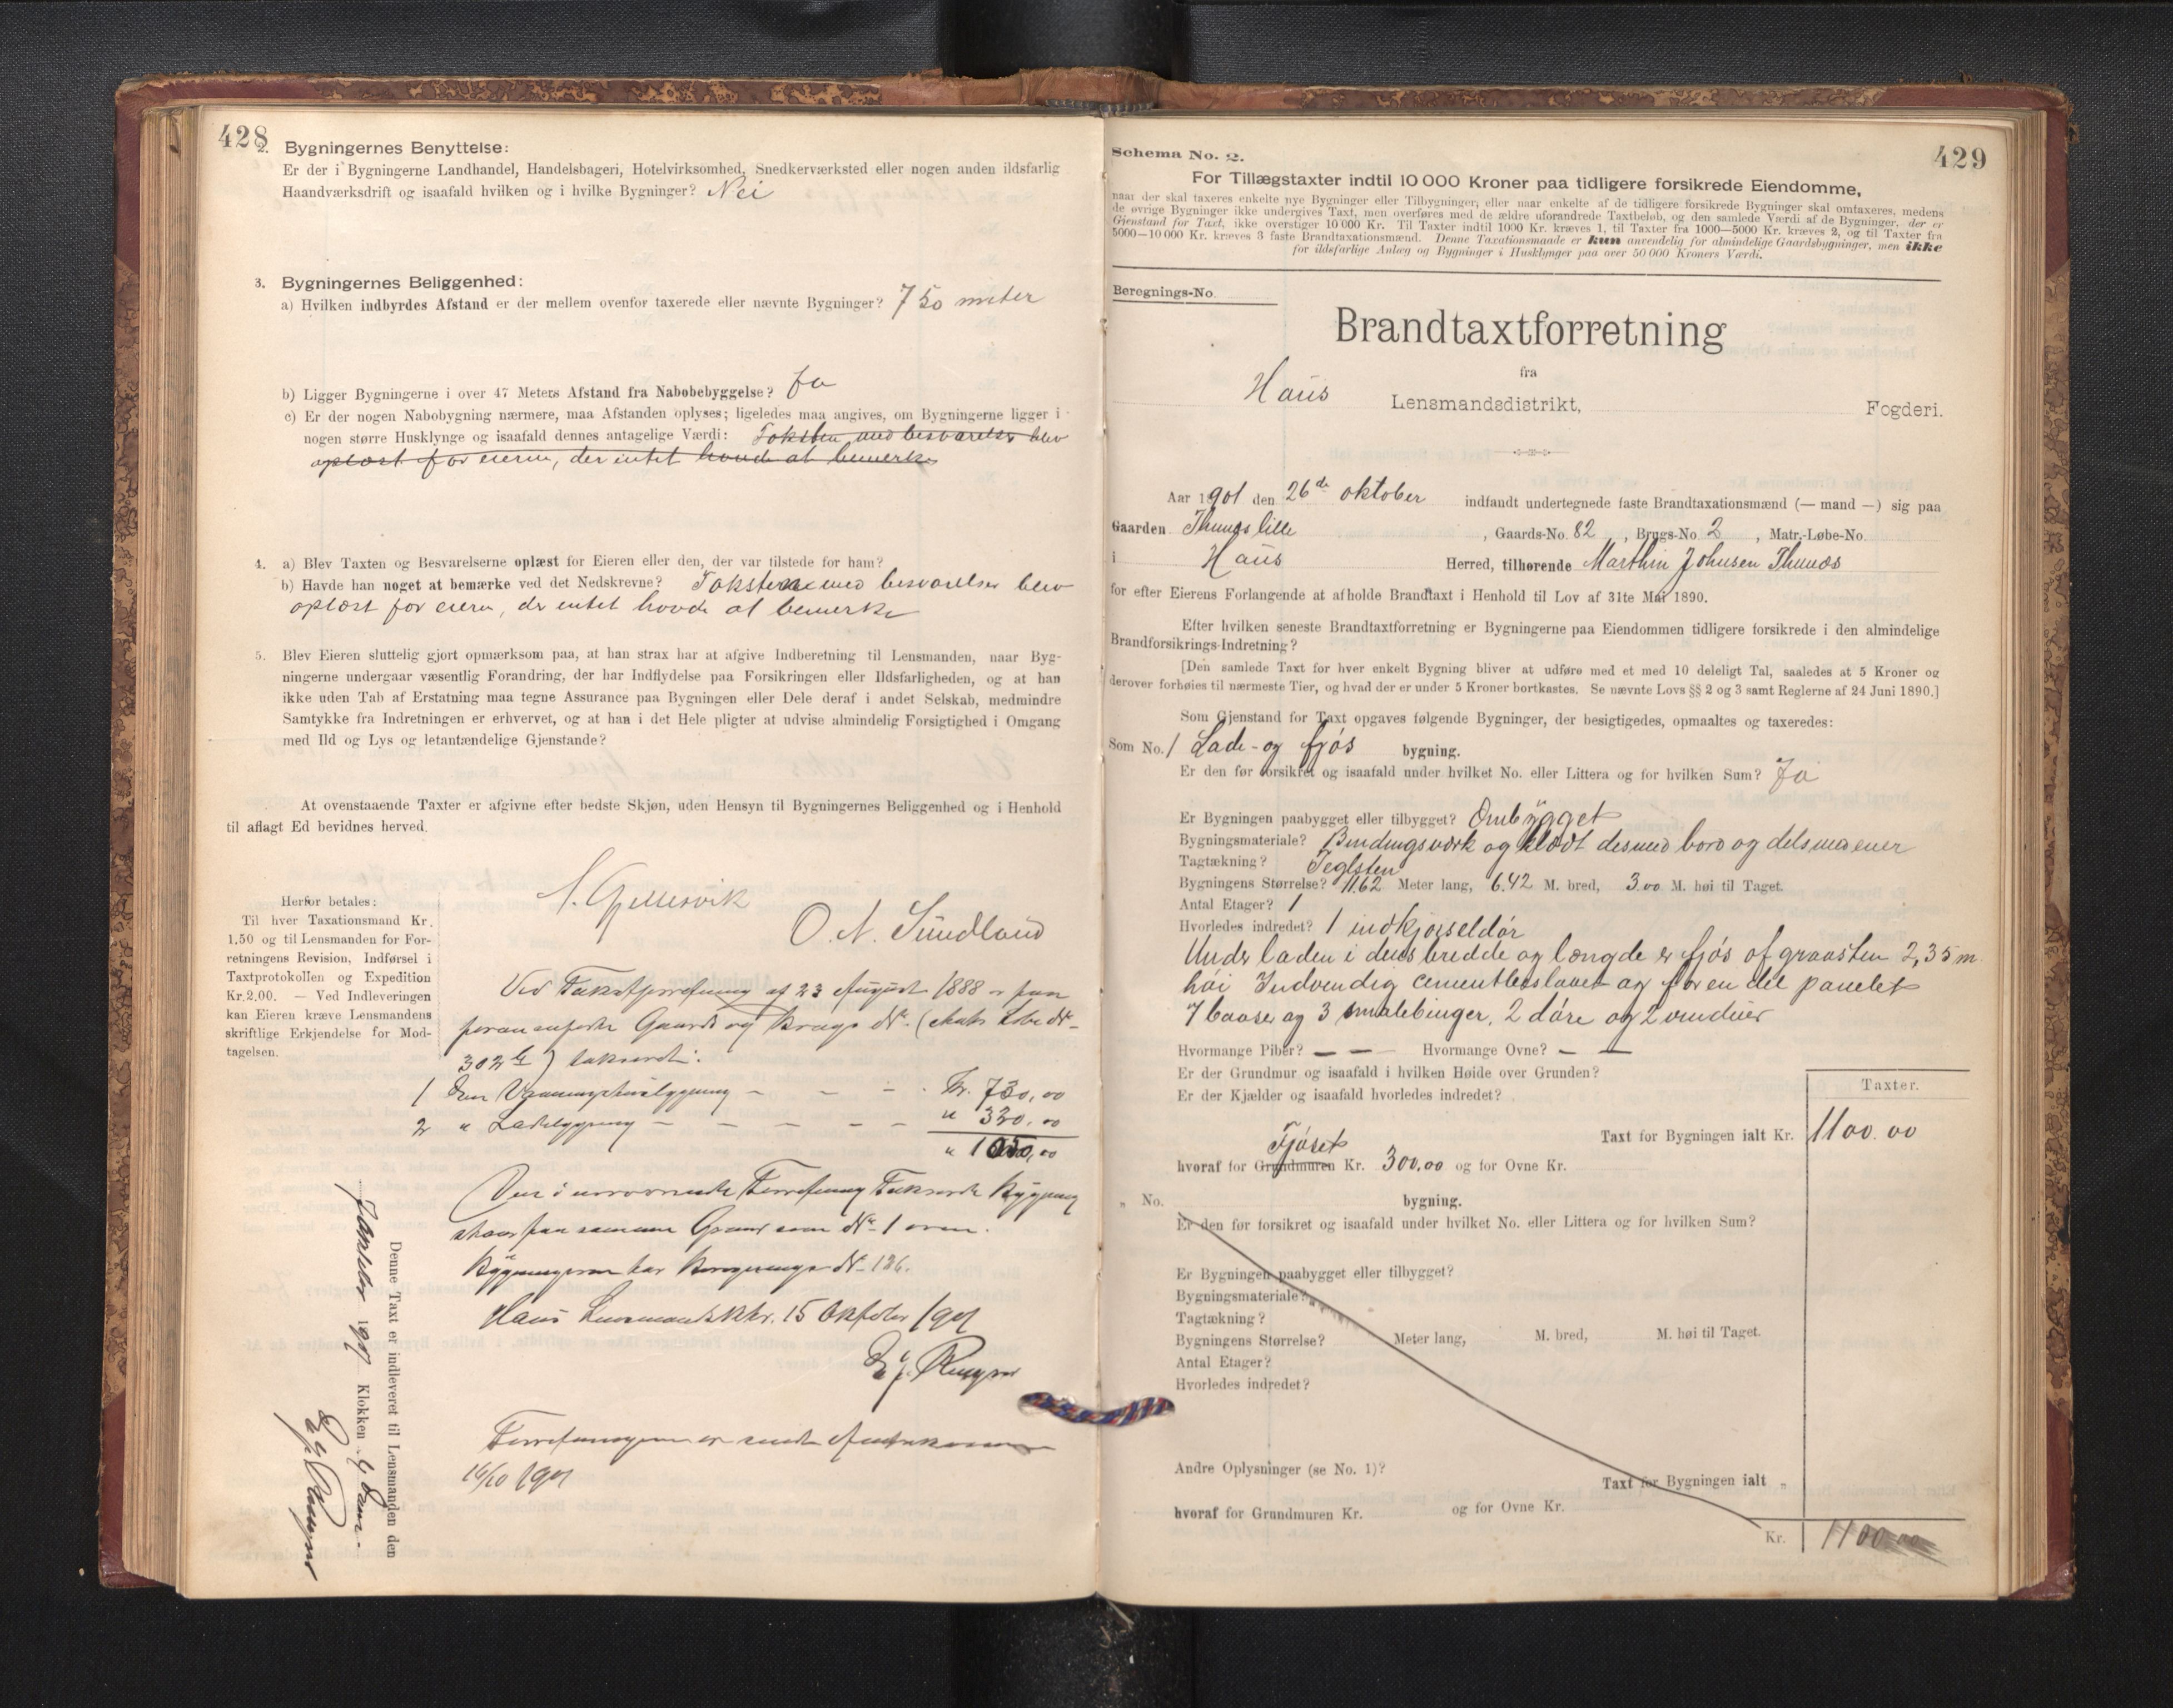 428
2. Bygningernes Benyttelse:
Er der i Bygningerne Landhandel, Handelsbageri, Hotelvirksomhed, Snedkerværksted eller nogen anden ildsfarlig
Haandværksdrift og isaafald hvilken og i hvilke Bygninger? Nei
3. Bygningernes Beliggenhed:
a) Hvilken indbyrdes Afstand er der mellem ovenfor taxerede eller nævnte Bygninger? 750 meter
b) Ligger Bygningerne i over 47 Meters Afstand fra Nabobebyggelse? Ja
c) Er der nogen Nabobygning nærmere, maa Afstanden oplyses; ligeledes maa angives, om Bygningerne ligger i
nogen større Husklynge og isaafald dennes antagelige Værdi: Toksten med besvarelse blev
oplæst for eieren, der intet havde at bemerke
4. a) Blev Taxten og Besvarelserne oplæst for Eieren eller den, der var tilstede for ham?
b) Havde han noget at bemærke ved det Nedskrevne? Toksterne med besvarelser blev
oplæst for eieren, der intet havde at bemerke
5. Blev Eieren sluttelig gjort opmærksom paa, at han strax har at afgive Indberetning til Lensmanden, naar Byg-
ningerne undergaar væsentlig Forandring, der har Indflydelse paa Forsikringen eller Ildsfarligheden, og at han
ikke uden Tab af Erstatning maa tegne Assurance paa Bygningen eller Dele deraf i andet Selskab, medmindre
Samtykke fra Indretningen er erhvervet, og at han i det Hele pligter at udvise almindelig Forsigtighed i Omgang
med Ild og Lys og letantændelige Gjenstande?
At ovenstaaende Taxter er afgivne efter bedste Skjøn, uden Hensyn til Bygningernes Beliggenhed og i Henhold
til aflagt Ed bevidnes herved.
O. N. Sundland
Herfor betales:
Til hver Taxationsmand Kr.
1.50 og til Lensmanden for For-
retningens Revision, Indførsel i
Taxtprotokollen og Expedition
Kr. 2.00. — Ved Indleveringen
kan Eieren kræve Lensmandens
skriftlige Erkjendelse for Mod-
tagelsen.
Ved Takstforretning af 23 August 1888 er paa
foran anførte Gaards og Brugs No. (Matr. Løbe No.
302 ) takseret:
1 Den Vaaningshusbygning — — — Kr. 730,00
2 " Ladebygning — — — — — " 320,00
" 1050,00
Den i nærværende Forretning Takserede Bygning
staar paa samme Grund som No. 1 oven.
Bygningerne har Beregnings No. 126.
Haus Lensmandsktr. 15 Oktober 1901
Forretningen er sendt
16/10 1901
Denne Taxt er indleveret til Lensmanden den
Oktober 1901 Klokken
429
Schema No. 2.
For Tillægstaxter indtil 10 000 Kroner paa tidligere forsikrede Eiendomme,
naar der skal taxeres enkelte nye Bygninger eller Tilbygninger, eller naar enkelte af de tidligere forsikrede Bygninger skal omtaxeres, medens
de øvrige Bygninger ikke undergives Taxt, men overføres med de ældre uforandrede Taxtbeløb, og den samlede Værdi af de Bygninger, der er
Gjenstand for Taxt, ikke overstiger 10 000 Kr. Til Taxter indtil 1000 Kr. kræves 1, til Taxter fra 1000—5000 Kr. kræves 2, og til Taxter fra
5000—10 000 Kr. kræves 3 faste Brandtaxationsmænd. Denne Taxationsmaade er kun anvendelig for almindelige Gaardsbygninger, men ikke
for ildsfarlige Anlæg og Bygninger i Husklynger paa over 50 000 Kroners Værdi.
Beregnings-No.
Brandtaxtforretning
fra
Haus Lensmandsdistrikt, Fogderi.
Aar 1901 den 26de oktober indfandt undertegnede faste Brandtaxationsmænd (— mand —) sig paa
Gaarden Thunes lille, Gaards-No. 82, Brugs-No. 2, Matr.-Løbe-No.
i Haus Herred, tilhørende Marthin Johnsen Thunæs
for efter Eierens Forlangende at afholde Brandtaxt i Henhold til Lov af 31te Mai 1890.
Efter hvilken seneste Brandtaxtforretning er Bygningerne paa Eiendommen tidligere forsikrede i den almindelige
Brandforsikrings-Indretning?
[Den samlede Taxt for hver enkelt Bygning bliver at udføre med et med 10 deleligt Tal, saaledes at 5 Kroner og
derover forhøies til nærmeste Tier, og hvad der er under 5 Kroner bortkastes. Se nævnte Lovs §§ 2 og 3 samt Reglerne af 24 Juni 1890.]
Som Gjenstand for Taxt opgaves følgende Bygninger, der besigtigedes, opmaaltes og taxeredes:
Som No. 1 Lade- og fjøs bygning.
Er den før forsikret og isaafald under hvilket No. eller Littera og for hvilken Sum? Ja
Er Bygningen paabygget eller tilbygget? Ombygget
Bygningsmateriale? Bindingsverk og klædt med bord og dels
Tagtækning? Teglsten
Bygningens Størrelse? 11.62 Meter lang, 6.42 M. bred, 3.00 M. høi til Taget.
Antal Etager? 1
Hvorledes indredet? 1 indkjørseldør
Under laden i dens bredde og længde er fjøs af graasten 2,35 m
høi Indvendig cementbeslaaet og for en del panelet
7 baaser og 3 smalebinger, 2 døre og 2 vinduer
Hvormange Piber? — — Hvormange Ovne? — —
Er der Grundmur og isaafald i hvilken Høide over Grunden?
Er der Kjælder og isaafald hvorledes indredet?
Taxter.
Taxt for Bygningen ialt Kr. 1100.00
Fjøset
hvoraf for Grundmuren Kr. 300.00 og for Ovne Kr.
" No. bygning.
Er den før forsikret og isaafald under hvilket No. eller Littera og for hvilken Sum?
Er Bygningen paabygget eller tilbygget?
Bygningsmateriale?
Tagtækning?
Bygningens Størrelse? Meter lang, M. bred, M. høi til Taget.
Antal Etager?
Hvorledes indredet?
Andre Oplysninger (se No. 1)?
Taxt for Bygningen ialt "
hvoraf for Grundmuren Kr. og for Ovne Kr.
Kr. 1100.00